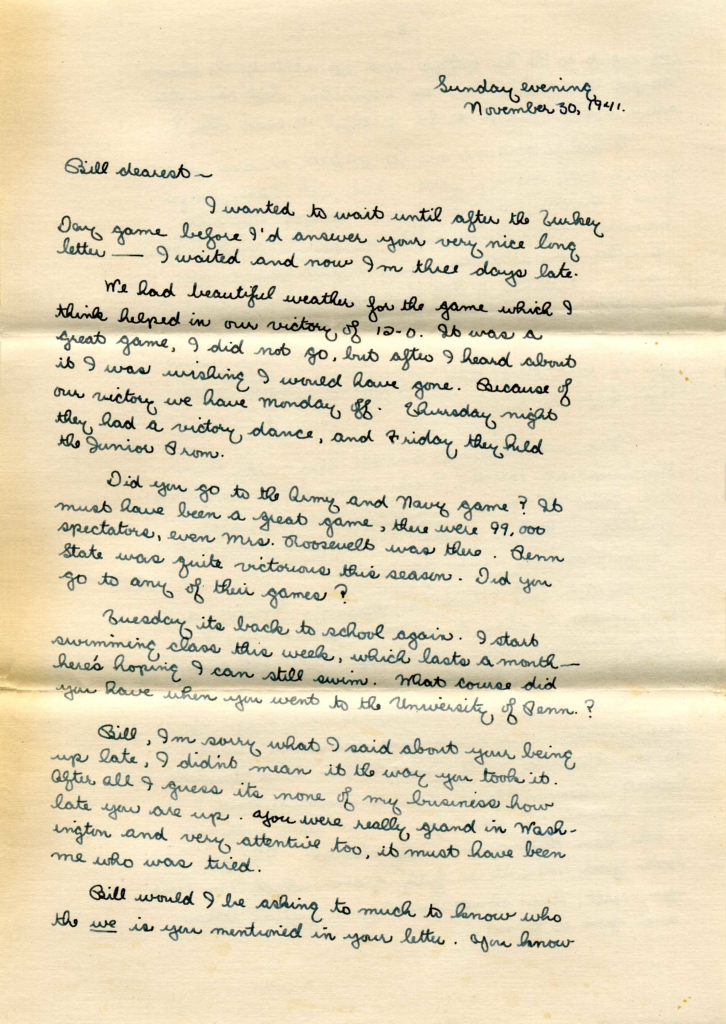 Sunday evening,
November 30, 1941.
Bill dearest—
I wanted to wait until after the Turkey
Day game before I'd answer your very nice long
letter — I waited and now I'm three days late.
We had beautiful weather for the game which I
think helped in our victory of 12-0. It was a
great game, I did not go, but after I heard about
it I was wishing I would have gone. Because of
our victory we have Monday off. Thursday night
they had a victory dance, and Friday they held
the Junior Prom.
Did you go to the Army and Navy game? It
must have been a great game, there were 99,000
spectators, even Mrs. Roosevelt was there. Penn
State was quite victorious this season. Did you
go to any of their games?
Tuesday its back to school again. I start
swimming class this week, which lasts a month—
here's hoping I can still swim. What course did
you have when you went to the University of Penn.?
Bill, I'm sorry what I said about your being
up late, I didn't mean it the way you took it.
After all I guess its none of my business how
late you are up. You were really grand in Wash-
ington and very attentive too, it must have been
me who was tired.
Bill would I be asking to much to know who
the we is you mentioned in your letter. You know